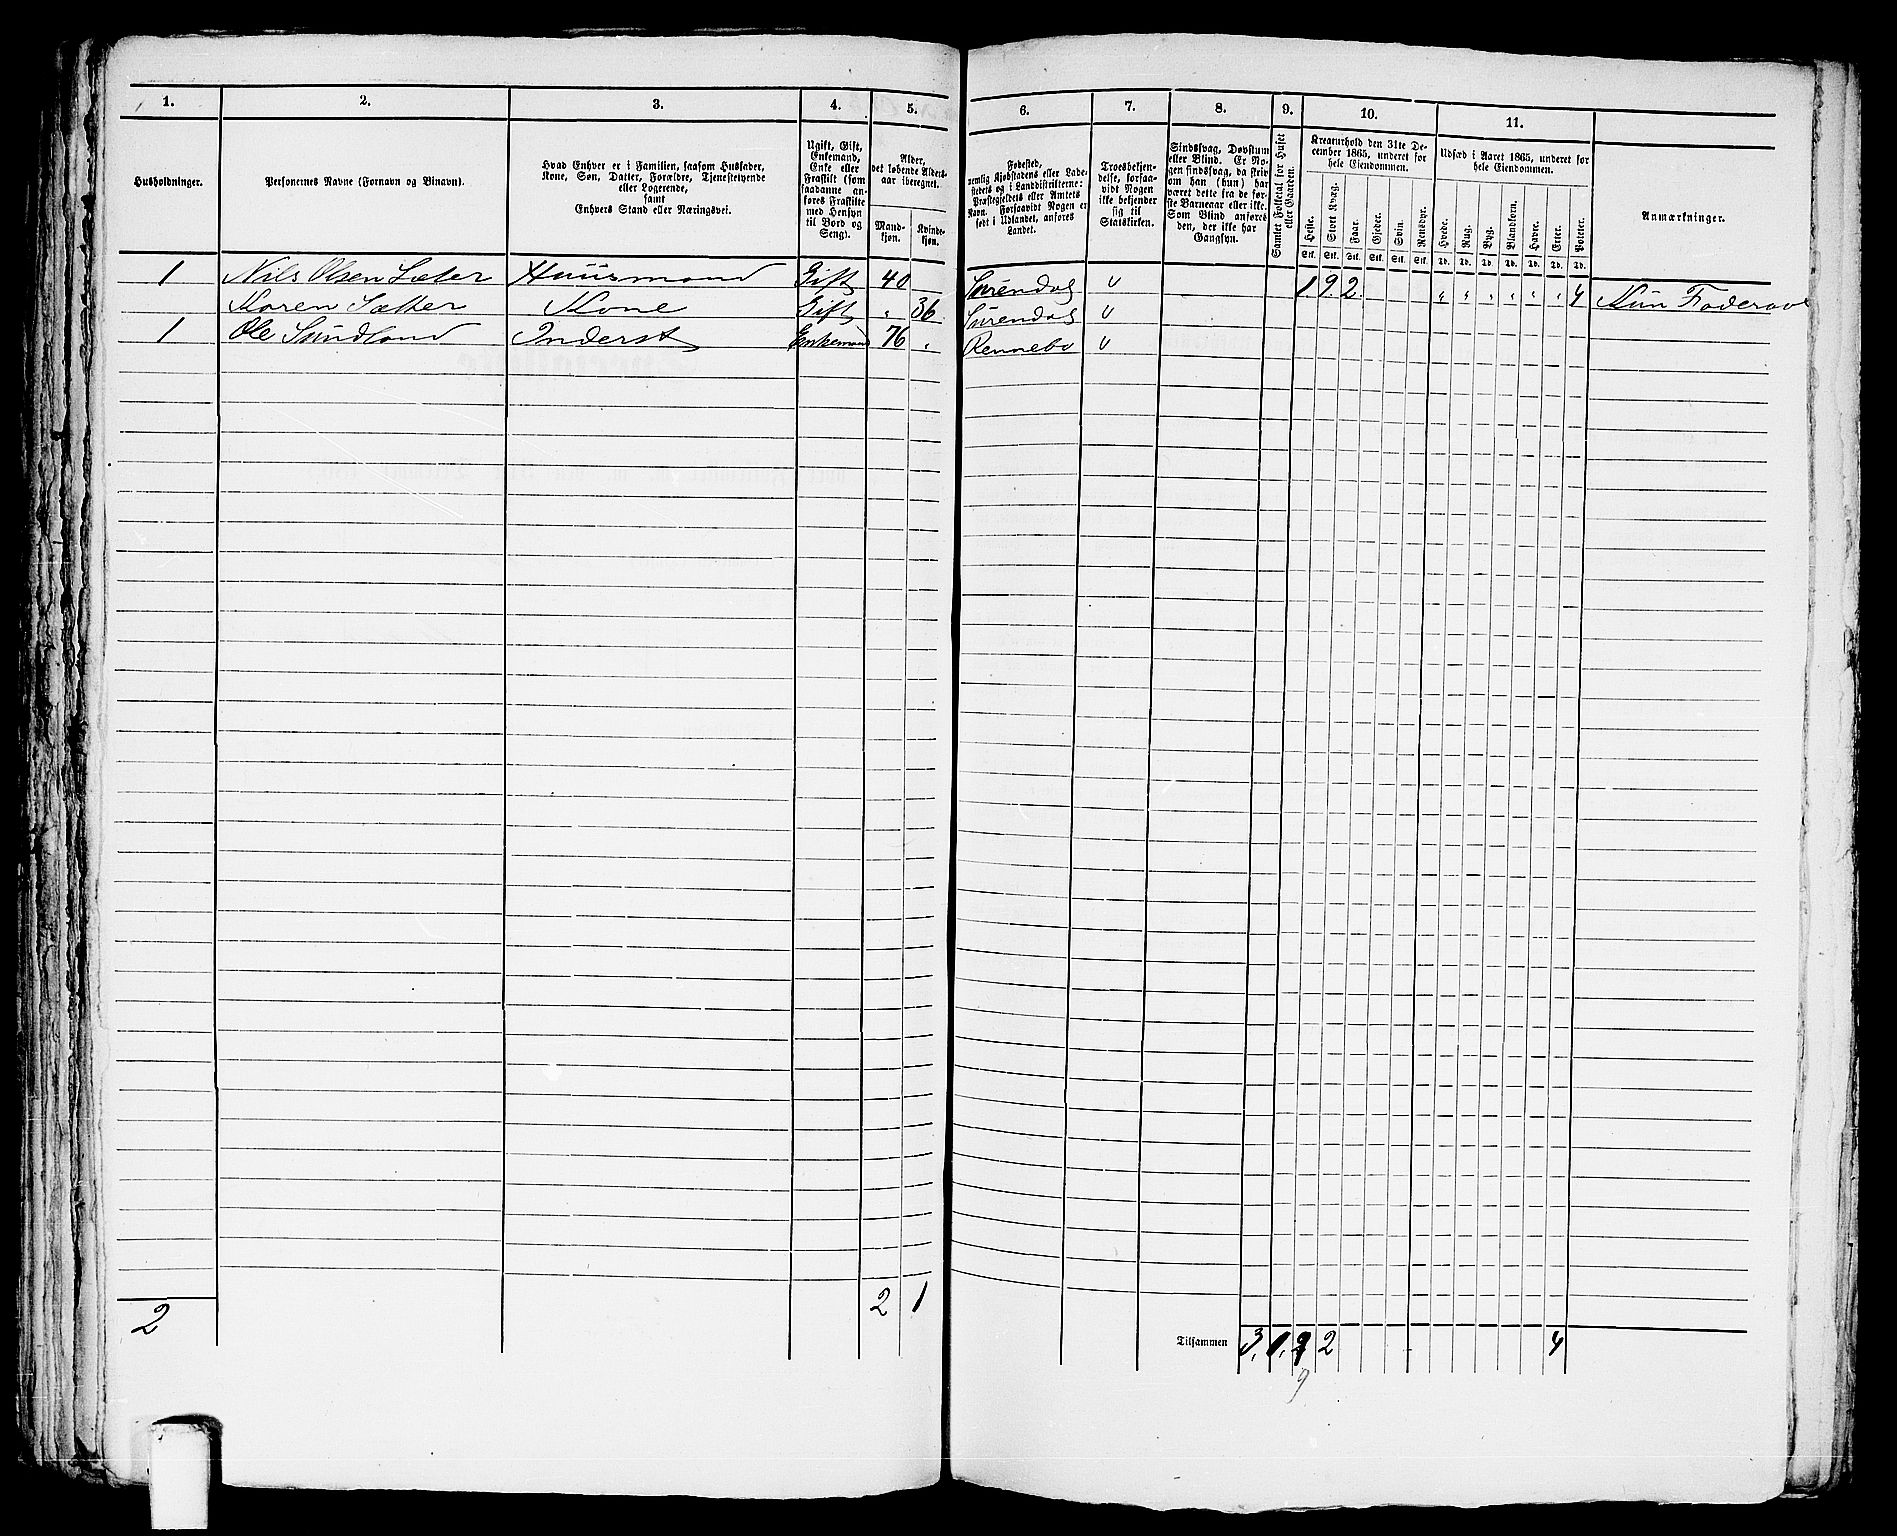 1. 2. 3. 4. 5. 6. 7. 8. 9. 10. 11.
Husholdninger.
Personernes Navne (Fornavn og Binavn).
Hvad Enhver er i Familien, saasom Husfader,
Kone, Søn, Datter, Forældre, Tjenestetyende
eller Logerende,
samt
Enhvers Stand eller Næringsvei.
Ugift, Gift,
Enkemand,
Enke eller
Fraskilt (som
saadanne an-
føres Fraskilte
med Hensyn
til Bord og
Seng).
Alder,
det løbende Alders-
aar iberegnet.
Mand-
kjøn.
Kvinde-
kjøn.
Fødested,
nemlig Kjøbstadens eller Lade-
stedets og i Landdistrikterne:
Præstegjeldets eller Amtets
Navn. Forsaavidt Nogen er
født i Udlandet, anføres
Landet.
Troesbekjen-
delse, forsaa-
vidt Nogen
ikke bekjender
sig til
Statskirken.
Sindssvag, Døvstum
eller Blind. Er No-
gen sindssvag, da skriv
om han (hun) har
været dette fra de før-
ste Barneaar eller ikke.
Som Blind anføres
den, der ikke har
Gangsyn.
Samlet Folketal for Huset
eller Gaarden.
Kreaturhold den 31te De-
cember 1865, underet for
hele Eiendommen.
Heste. Stort Kvæg. Faar. Gjeder. Svin. Rensdyr.
Stk. Stk. Stk. Stk. Stk. Stk.
Udsæd i Aaret 1865, underet for
hele Eiendommen.
Hvede. Rug. Byg. Blandkorn. Havre. Erter. Poteter.
Td. Td. Td. Td. Td. Td. Td.
Anmærkninger.
1 Nils Olsen Sæter Huusmand Gift 40 Surendal " 1 9 2 " " " " " " 4 Kun
Karen Sætter Kone Gift " 36 Surendal "
1 Ole Sundland Inderst Enkemand 76 " Rennebo "
2 2 1
Tilsammen 3, 1, 9 2 4
9